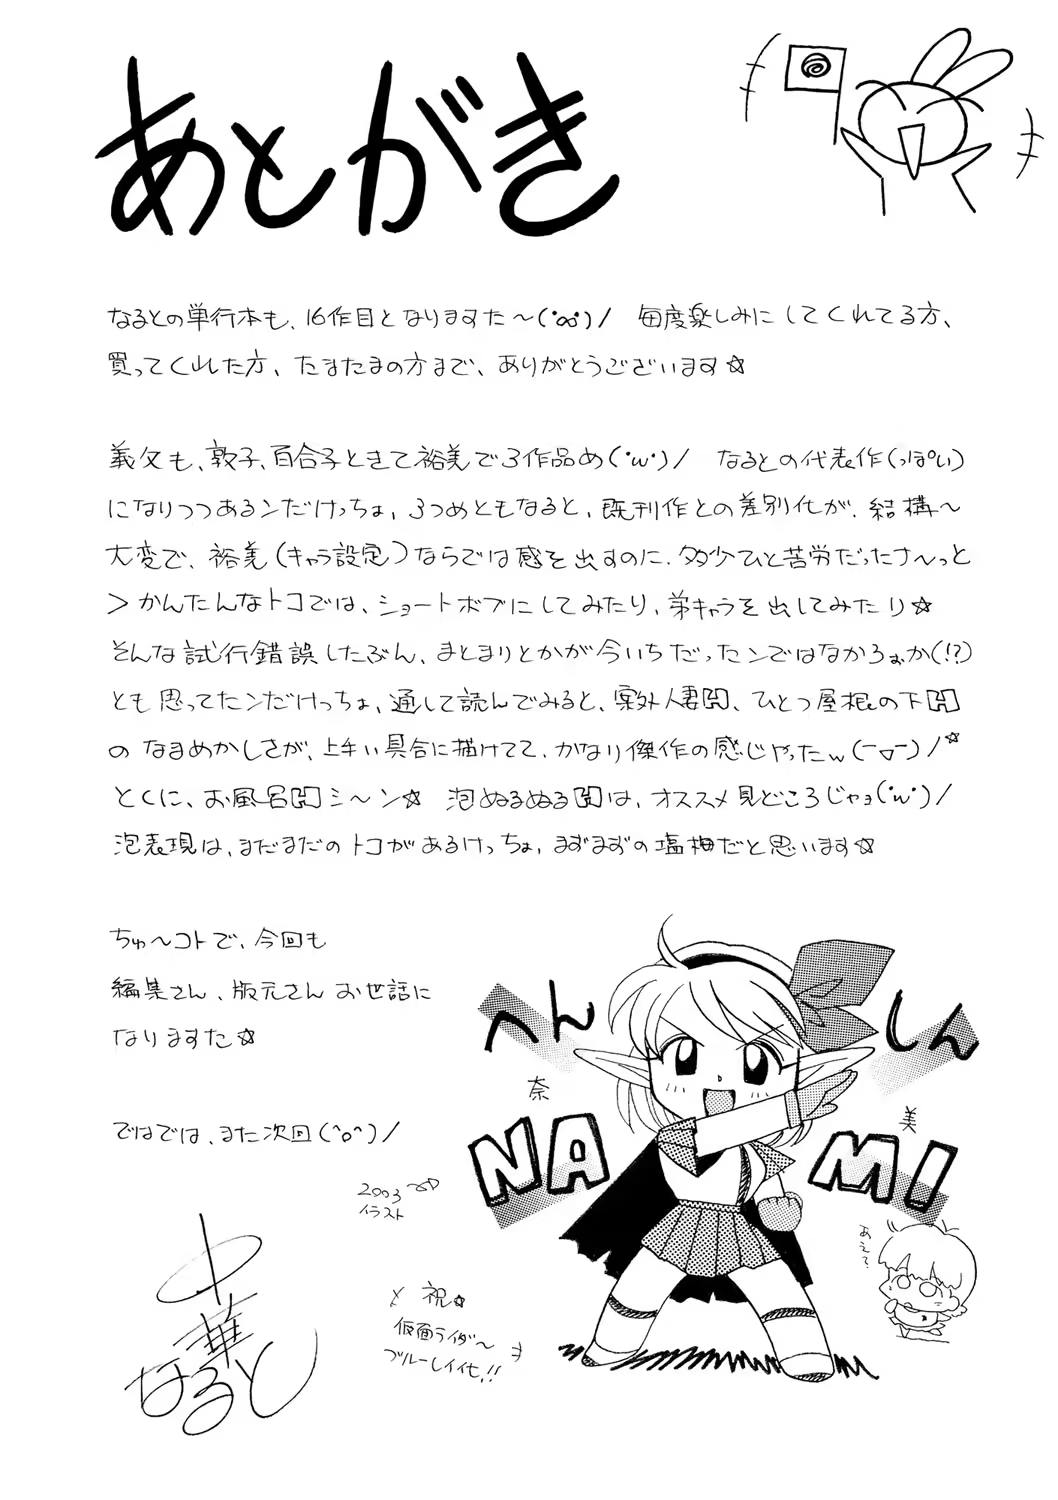 あとがき
なるとの単行本も、16作目となりますた～(・∞・)/　毎度楽しみにしてくれてる方、
買ってくれた方、たまたまの方まで、ありがとうございます☆
義父も、敦子、百合子ときて裕美で3作品め(・ω・)/　なるとの代表作(っぽい)
になりつつあるンだけっちょ、3つめともなると、既刊作との差別化が、結構～
大変で、裕美(キャラ設定)ならでは感を出すのに、多少ひと苦労だったナ～っと
＞かんたんなトコでは、ショートボブにしてみたり、弟キャラを出してみたり☆
そんな試行錯誤したぶん、まとまりとかが今いちだったンではなかろぉか(!?)
とも思ってたンだけっちょ、通して読んでみると、案外人妻H、ひとつ屋根の下H
のなまめかしさが、上手い具合に描けてて、かなり傑作の感じやったw(￣▽￣)/☆
とくに、お風呂Hシ～ン☆　泡ぬるぬるHは、オススメ見どころじゃョ(・ω・)/
泡表現は、まだまだのトコがあるけっちょ、まずまずの塩梅だと思います☆
ちゅ～コトで、今回も
編集さん、版元さんお世話に
なりますた☆
ではでは、また次回(^o^)/
へん
しん
奈
美
NA
MI
2003
イラスト
あえて?
祝☆
仮面ライダ～
ブルーレイ化!!
中華
なると